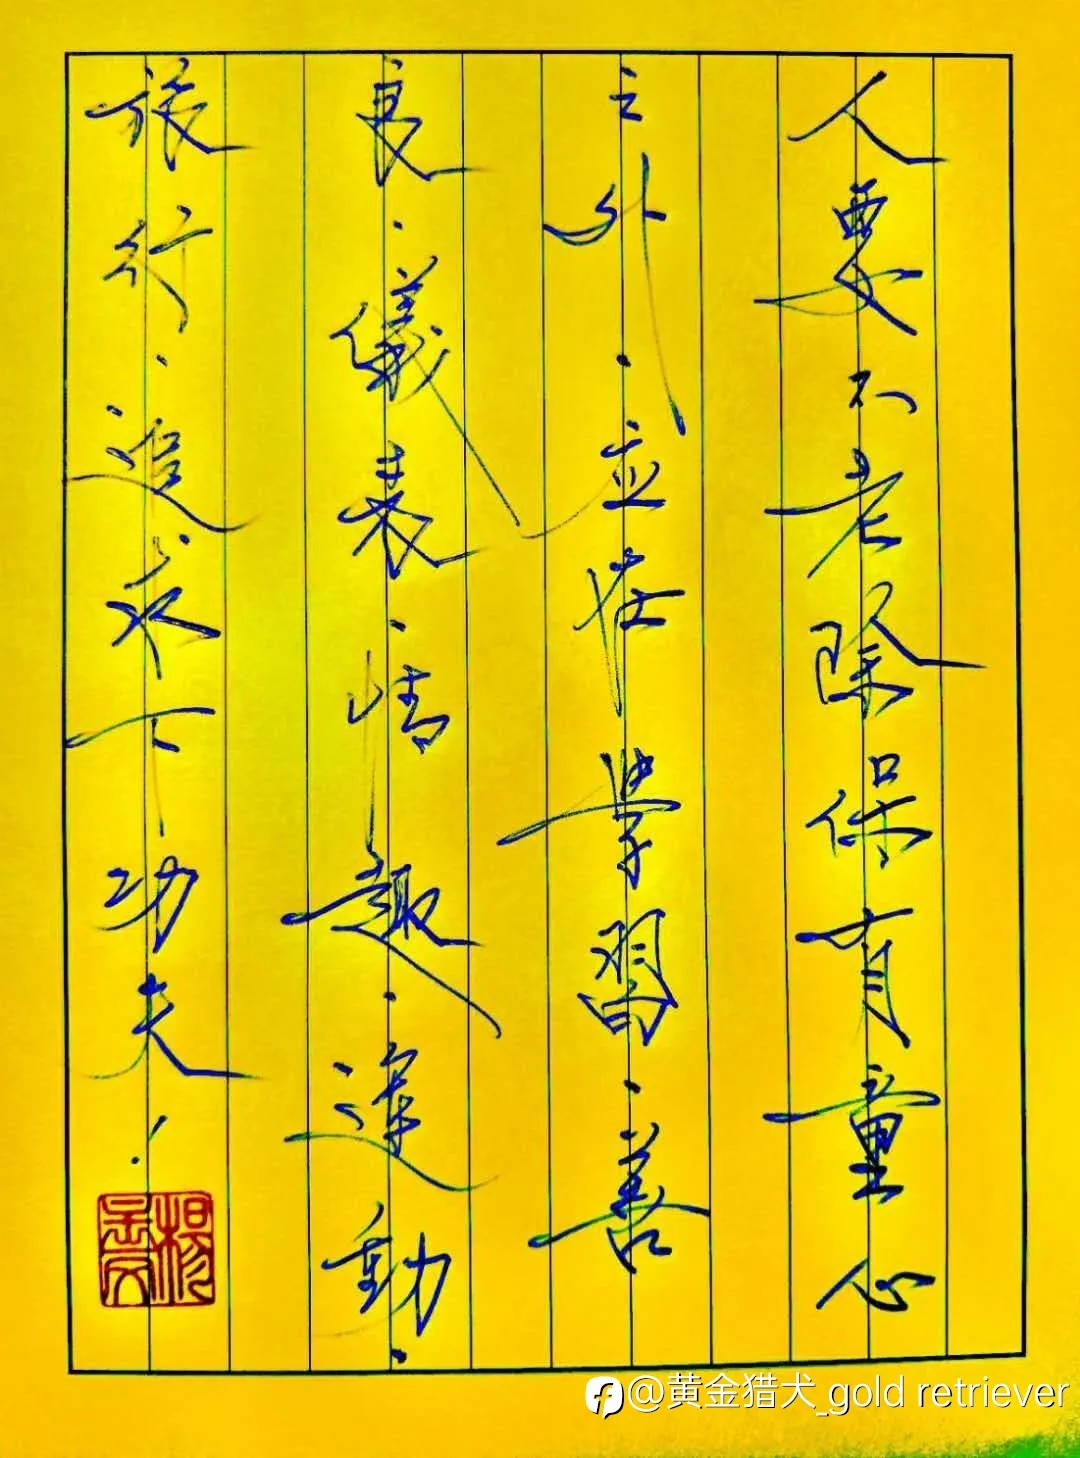 人要不老除保有童心
之外．应在學習．善
良．儀表．情趣．運動．
旅行．追求下功夫！
@黄金猎犬_gold retriever